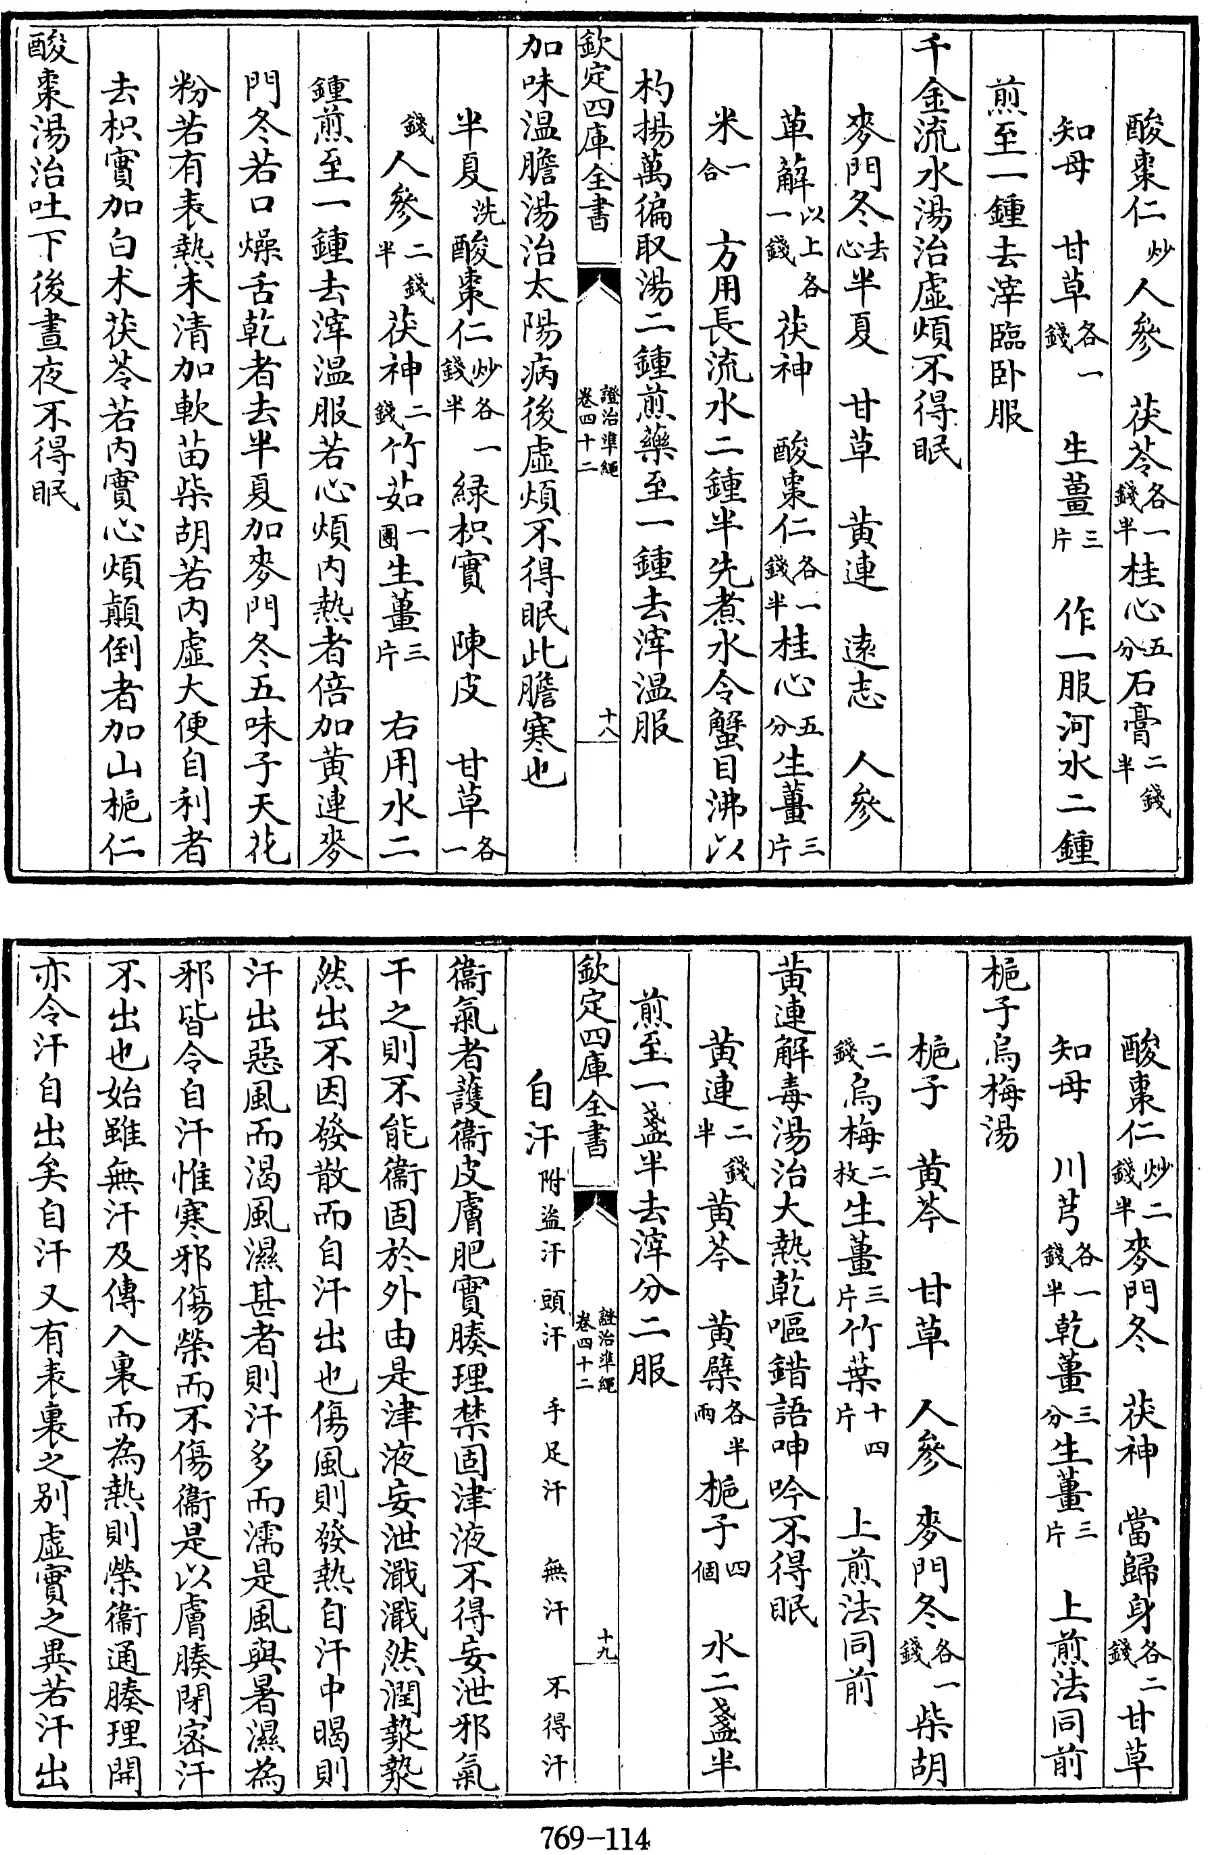 酸棗仁炒人參　茯苓各一錢半桂心五分石膏二錢半
知母　甘草各一錢　生薑三片　作一服河水二鍾
煎至一鍾去滓臨卧服
千金流水湯治虛煩不得眠
麥門冬去心半夏　甘草　黃連　遠志　人參
萆解以上各一錢　茯神　酸棗仁各一錢半桂心五分生薑三片
米一合　方用長流水二鍾半先煮水令蟹目沸以
杓揚萬徧取湯二鍾煎藥至一鍾去滓温服
欽定四庫全書　證治準繩卷四十二　十八
加味温膽湯治太陽病後虛煩不得眠此膽寒也
半夏洗酸棗仁炒各一錢半綠枳實　陳皮　甘草各一
錢人參二錢半茯神二錢竹茹一團生薑三片　右用水二
鍾煎至一鍾去滓温服若心煩内熱者倍加黃連麥
門冬若口燥舌乾者去半夏加麥門冬五味子天花
粉若有表熱未清加軟苗柴胡若内虛大便自利者
去枳實加白朮茯苓若内實心煩顛倒者加山梔仁
酸棗湯治吐下後晝夜不得眠
酸棗仁炒二錢半麥門冬　茯神　當歸身各二錢甘草
知母　川芎各一錢半乾薑三分生薑三片　上煎法同前
梔子烏梅湯
梔子　黃芩　甘草　人參　麥門冬各一錢柴胡
二錢烏梅二枚生薑三片竹葉十四片　上煎法同前
黃連解毒湯治大熱乾嘔錯語呻吟不得眠
黃連二錢半黃芩　黃蘗各半兩梔子四個　水二盞半
煎至一盞半去滓分二服
欽定四庫全書　證治準繩卷四十二　十九
自汗附盜汗頭汗　手足汗　無汗　不得汗
衞氣者護衞皮膚肥實腠理禁固津液不得妄泄邪氣
干之則不能衞固於外由是津液妄泄濈濈然潤漐漐
然出不因發散而自汗出也傷風則發熱自汗中暍則
汗出惡風而渴風濕甚者則汗多而濡是風與暑濕為
邪皆令自汗惟寒邪傷榮而不傷衞是以膚腠閉密汗
不出也始雖無汗及傳入裏而為熱則榮衞通腠理開
亦令汗自出矣自汗又有表裏之别虛實之異若汗出
769-114